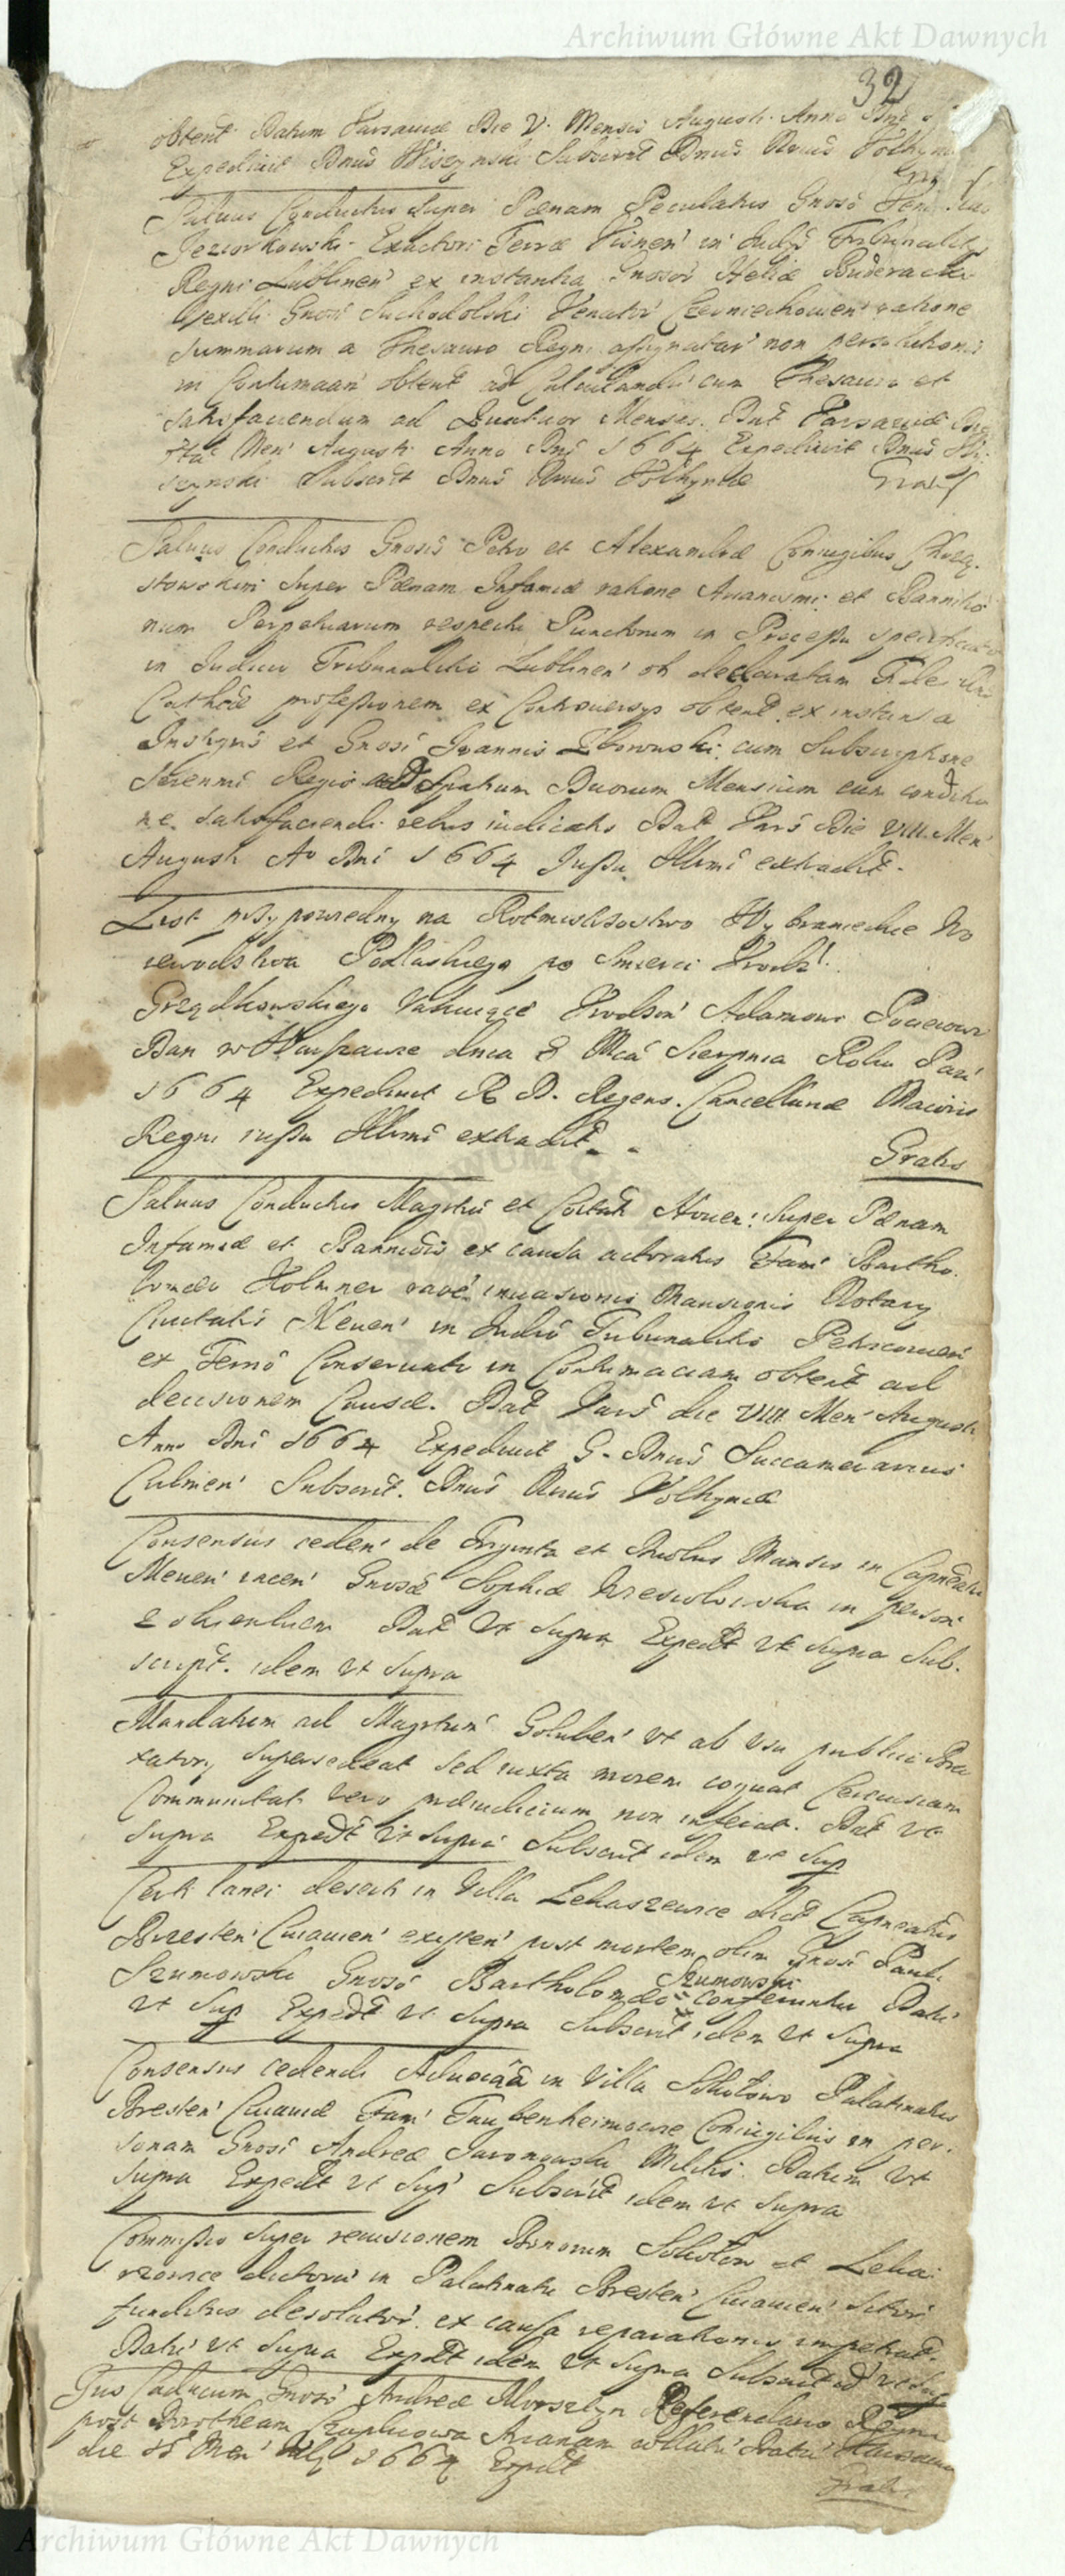 Archiwum Główne Akt Dawnych
32
obtent Datum Varsaviæ Die V. Mensis Augusti Anno Dni
Expedivit Dnus Subscrit Dnus Rnus Volhyniæ
Salvus Conductus Super Pœnam Peculatus Gnoso
Jeziorkowski Exactori Terræ Visnen' in Judys Tribunalitys
Regni Lublinen' ex instantia Gnosor' Heliæ
Gnosi Suchodolski Venator' Czerniechowien' ratione
Summarum a Thesauro Regni assignatar' non persolutionis
in Contumaciam obtent ad Calculandũ cum Thesauro et
satisfaciendum ad Quatuor Menses. Dat Varsaviæ Die
Men' Augusti Anno Dni 1664 Expedivit Dnus
Subscrit Dnus Rnus Volhyniæ
Gratis
Salvus Conductus Gnosis Petro et Alexandræ Coniugibus Chrzą-
stowskim Super Pœnam Infamiæ ratione Arianismi et Bannitio
num Perpetuarum respectu Punctorum in Processu specificator
in Iudicio Tribunalitio Lublinen' ob declaratam Fidei
Catholæ professionem ex Controversys obtent ex instantia
Instigris et Gnosi Joannis cum Subscriptione
Serenmi Regis ad Spatium Duorum Mensium cum conditio
ne satisfaciendi rebus iudicatis Dat Vars Die VIII Men'
Augusti Ao Dni 1664 Jussu Illmi extradit.
List przypowiedny na Rotmistrzostwo Wybranieckie Wo
iewodstwa Podlaskiego po Smierci Urodz'.
Grządkowskiego Vakuiące Urodzon' Adamowi Pocieiowi
Dan w Warszawie dnia 8 Mca Sierpnia Roku Pan'
1664 Expedivit R. D. Regens Cancellariæ Maioris
Regni iussu Illmi extradit
Gratis
Salvus Conductus Magrtui et Coitati Meven: Super Pœnam
Infamiæ et Bannitiõis ex causa actoratus Fam' Bartho-
lomæi Holmner raõe invasionis Mansionis Notary
Civitatis Meven' in Judiõ Tribunalitio Petricovien'
ex Ternõ Conservati in Contumaciam obtent ad
decisionem Causæ. Dat Vars die VIII Men' Augusti
Anno Dni 1664 Expedivit G. Dnus Succamerarius
Culmen' Subscrit. Dnus Rnus Volhyniæ
Consensus ceden' de Triginta et Duobus Mansis in Capneatu
Meven' iacen' Gnosæ Sophiæ in person'
Dat Vt Supra Expedt Vt Supra Sub-
script. idem Vt Supra
Mandatum ad Magrtum Goluben' Vt ab Vsu publici Bra
xatory Supersedeat sed iuxta morem coquat Cerevisiam
Communitati vero præiudicium non inferat. Dat Vt
Supra Expedt Vt Supra Subscrit idem Vt Sup
Certi lanei deserti in Villa Lekaszewice dict Capneatus
Bresten' Cuiavien' existen' post mortem olim Gnosi Pauli
Szumowski Gnosõ Bartholomæo Szumowski conferuntur Dat'
Vt Sup Expedt Vt Supra Subscrit idem Vt Supra
Consensus cedendi Advocãa in Villa Sokołowo Palatinatus
Bresten' Cuiaviæ Fam' Taubenheimowie Coniugibus in per-
sonam Gnosi Andreæ Jaronowski Militis. Datum Vt
Supra Expedt Vt Sup' Subscrit idem Vt Supra
Commissio Super revisionem Bonorum Sokołow et Lekai
szowice dictorũ in Palatinatu Bresten' Cuiavien' sitor'
funditus desolator' ex causa reparationis impetrat.
Dat' Vt Supra Expdt idem Vt Supra Subscrit
Jus Caducum Gnoso Andreæ Morsztyn Referendario Regni
post Dorotheam Czaplicowa Arianam collatũ Datũ Varsaviæ
die 15 Men' July 1664 Expdt
Gratis
Archiwum Główne Akt Dawnych